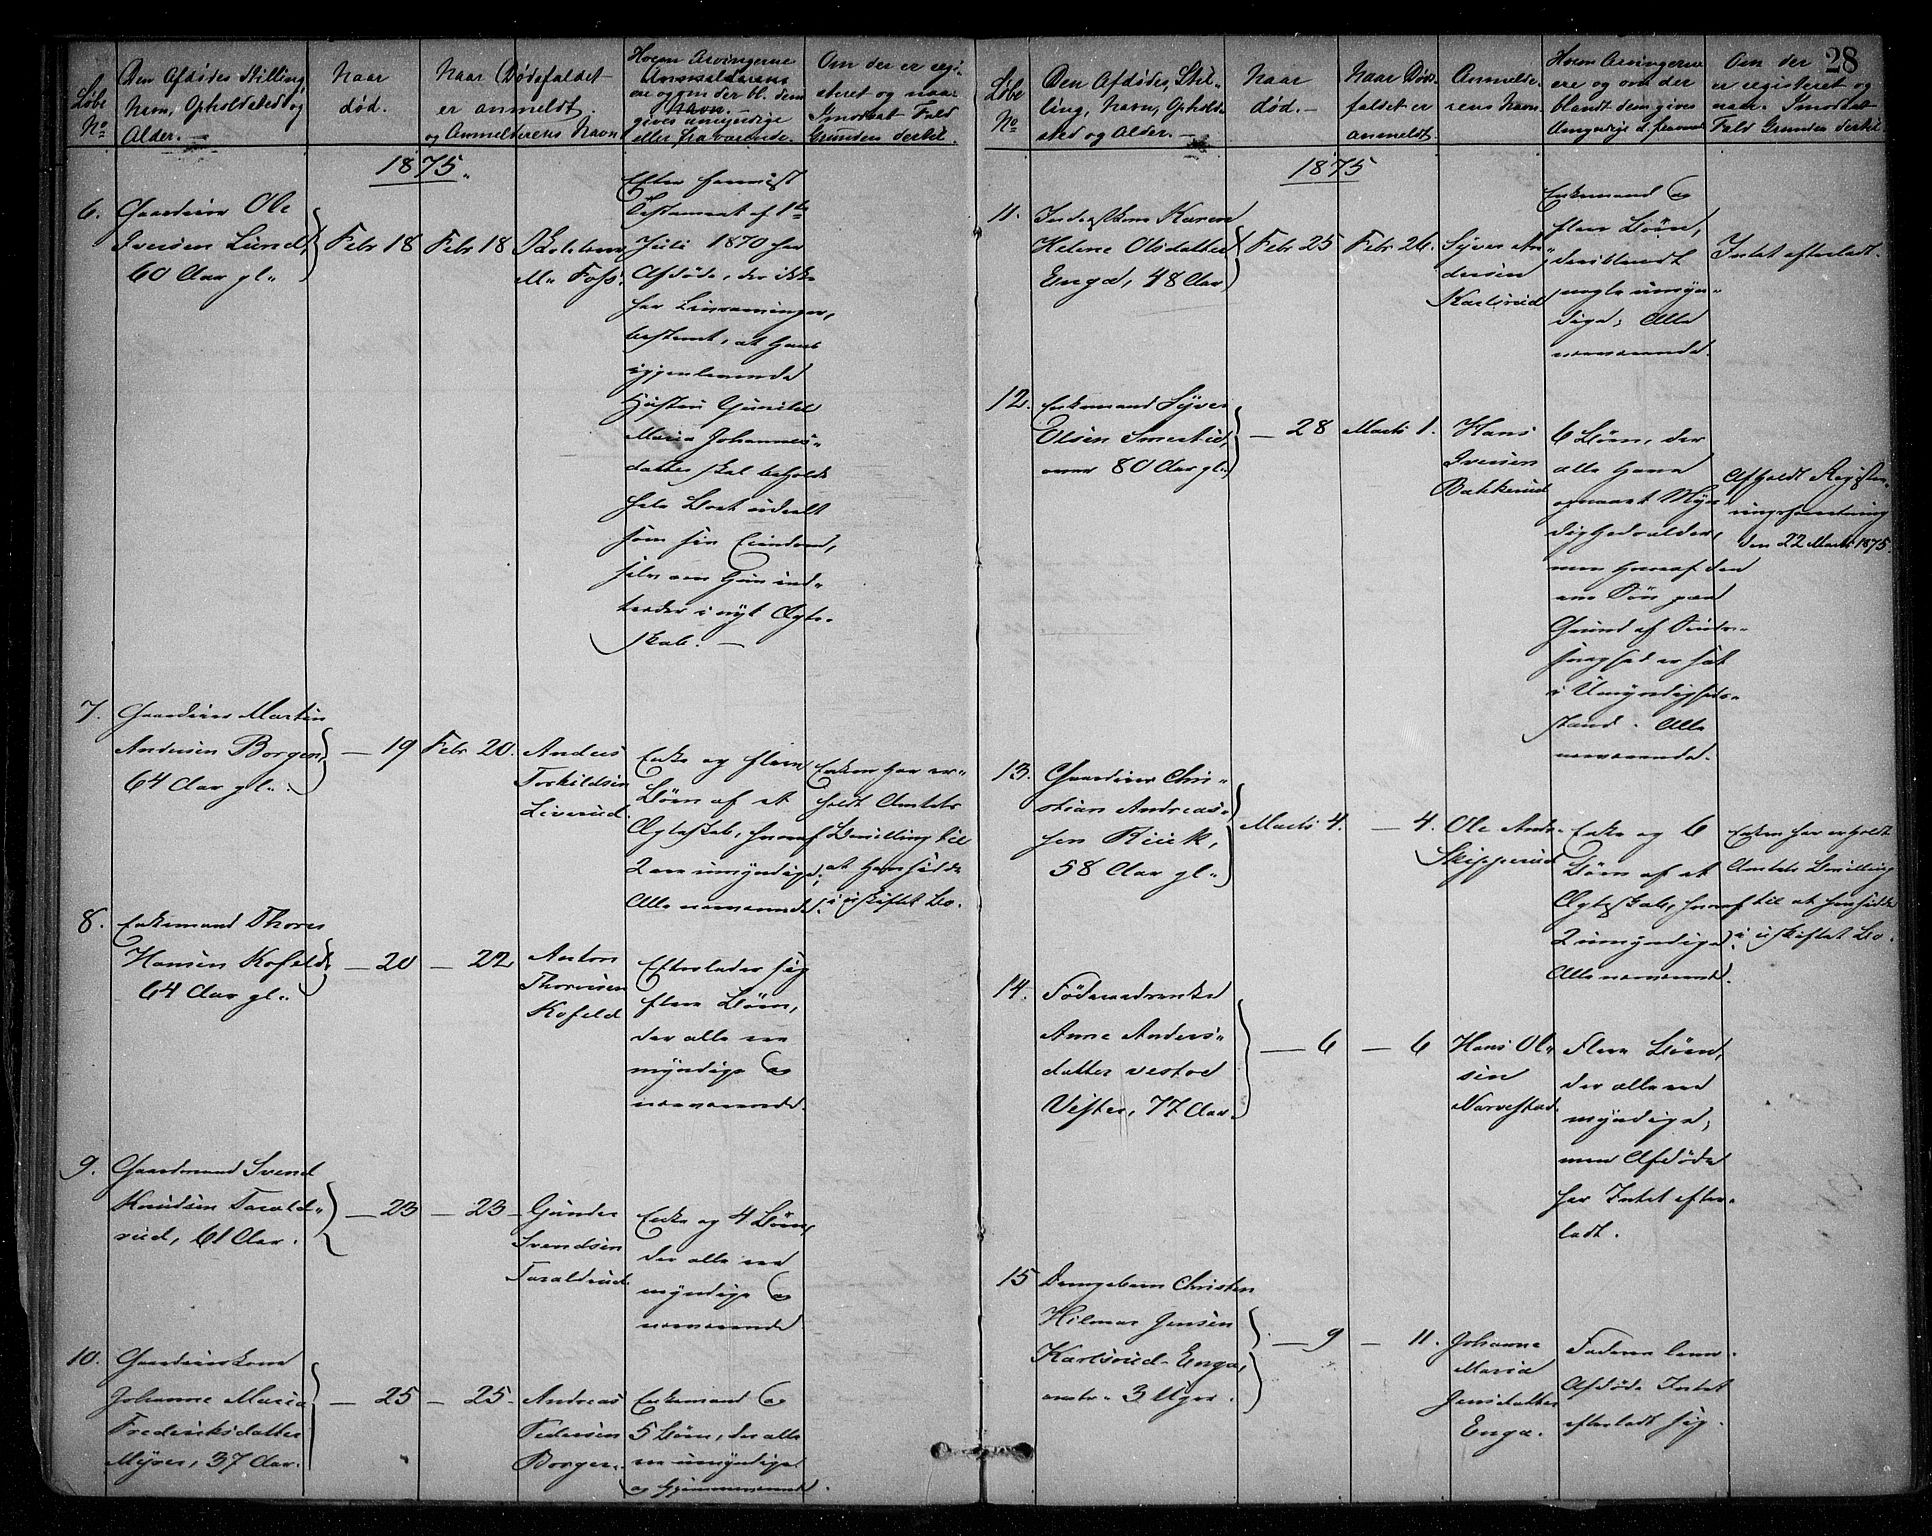 28
Løbe No
Den Afdødes Stilling,
Navn, Opholdsted og
Alder.
Naar
død.
Naar Dødsfaldet
er anmeldt
og Anmelderens Navn
Hvem Arvingerne
Anmelderens
ere og om der bl. dem
Navn
gives umyndige
eller fraværende.
Om der er regi-
streret og naar.
I modsat Fald
Grunden dertil.
1875.
6.
Gaardeier Ole
Iversen Lund,
60 Aar gl.
Febr 18
Febr 18
M. Foss.
Efter forevist
Testament af 1ste
Juli 1870 har
Afdøde, der ikke
har Livsarvinger,
bestemt, at hans
igjenlevende
Hustru Gunild
Maria Johannes-
datter skal beholde
hele Boet udeelt
som sin Eiendom,
selv om hun ind-
træder i nyt Ægte-
skab. —
7.
Gaardeier Martin
Andersen Borgen,
64 Aar gl.
— 19
Febr 20.
Anders
Torkildsen
Liverud.
Enke og flere
Børn af et
Ægteskab, hvoraf
2 ere umyndige;
Alle nærværende.
Enken har er-
holdt Amtets
Bevilling til
at hensidde
i uskiftet Bo.
8.
Enkemand Thorer
Hansen Kofeld,
64 Aar gl.
— 20
— 22
Anton
Thoresen
Kofeld
Efterlader sig
flere Børn,
der alle ere
myndige og
nærværende.
9.
Gaardmand Svend
Knudsen Tarald-
rud, 61 Aar.
— 23
— 23
Gunder
Svendsen
Taraldrud.
Enke og 4 Børn,
der alle ere
myndige og
nærværende.
10.
Gaardeierskone
Johanne Maria
Frederiksdatter
Myrer, 37 Aar.
— 25
— 25
Andreas
Pedersen
Borgen.
Enkemand og
5 Børn, der alle
ere umyndige
og hjemmeværende.
Løbe No
Den Afdødes Stil-
ling, Navn, Ophold-
sted og Alder. —
Naar
død. —
Naar Døds-
faldet er
anmeldt
Anmelde-
rens Navn
Hvem Arvingerne
ere og om der
blandt dem gives
Umyndige el. fraværende
Om der
er registreret og
naar. I modsat
Fald Grunden dertil
1875
11.
Inds. Kone Karen
Helene Olsdatter
Enga, 48 Aar
Febr 25
Febr 26.
Syver An-
dersen
Karlsrud
Enkemand og
flere Børn,
deriblandt
nogle umyn-
dige; Alle
nærværende.
Intet efterladt.
12.
Enkemand Syver
Olsen Smestad,
over 80 Aar gl.
— 28
Marts 1.
Hans
Iversen
Bakkerud
6 Børn, der
alle have
opnaaet Myn-
dighedsalder,
men hvoraf den
ene Søn paa
Grund af Sinds-
svaghed er sat
i Umyndigheds-
stand. Alle
nærværende.
Afholdt Registre-
ringsforretning
den 22 Marts 1875.
13.
Gaardeier Chri-
stian Andreas-
sen Kiirk,
58 Aar gl.
Marts 4.
— 4.
Ole Andr.
Skipperud
Enke og 6
Børn af et
Ægteskab, hvoraf
2 umyndige
Alle nærværende.
Enken har erholdt
Amtets Bevilling
til at hensidde
i uskiftet Bo.
14.
Føderaadsenke
Anne Anders-
datter vestre
Vifter, 77 Aar.
— 6
— 6
Hans Ol-
sen
Narvestad.
Flere Børn,
der alle ere
myndige,
men Afdøde
har Intet efter-
ladt.
15
Drengebarn Christen
Hilmar Jensen
Karlsrud-Enga,
omtr. 3 Uger.
— 9
— 11.
Johanne
Maria
Jensdatter
Enga.
Faderen lever.
Afdøde Intet
efterladt sig.